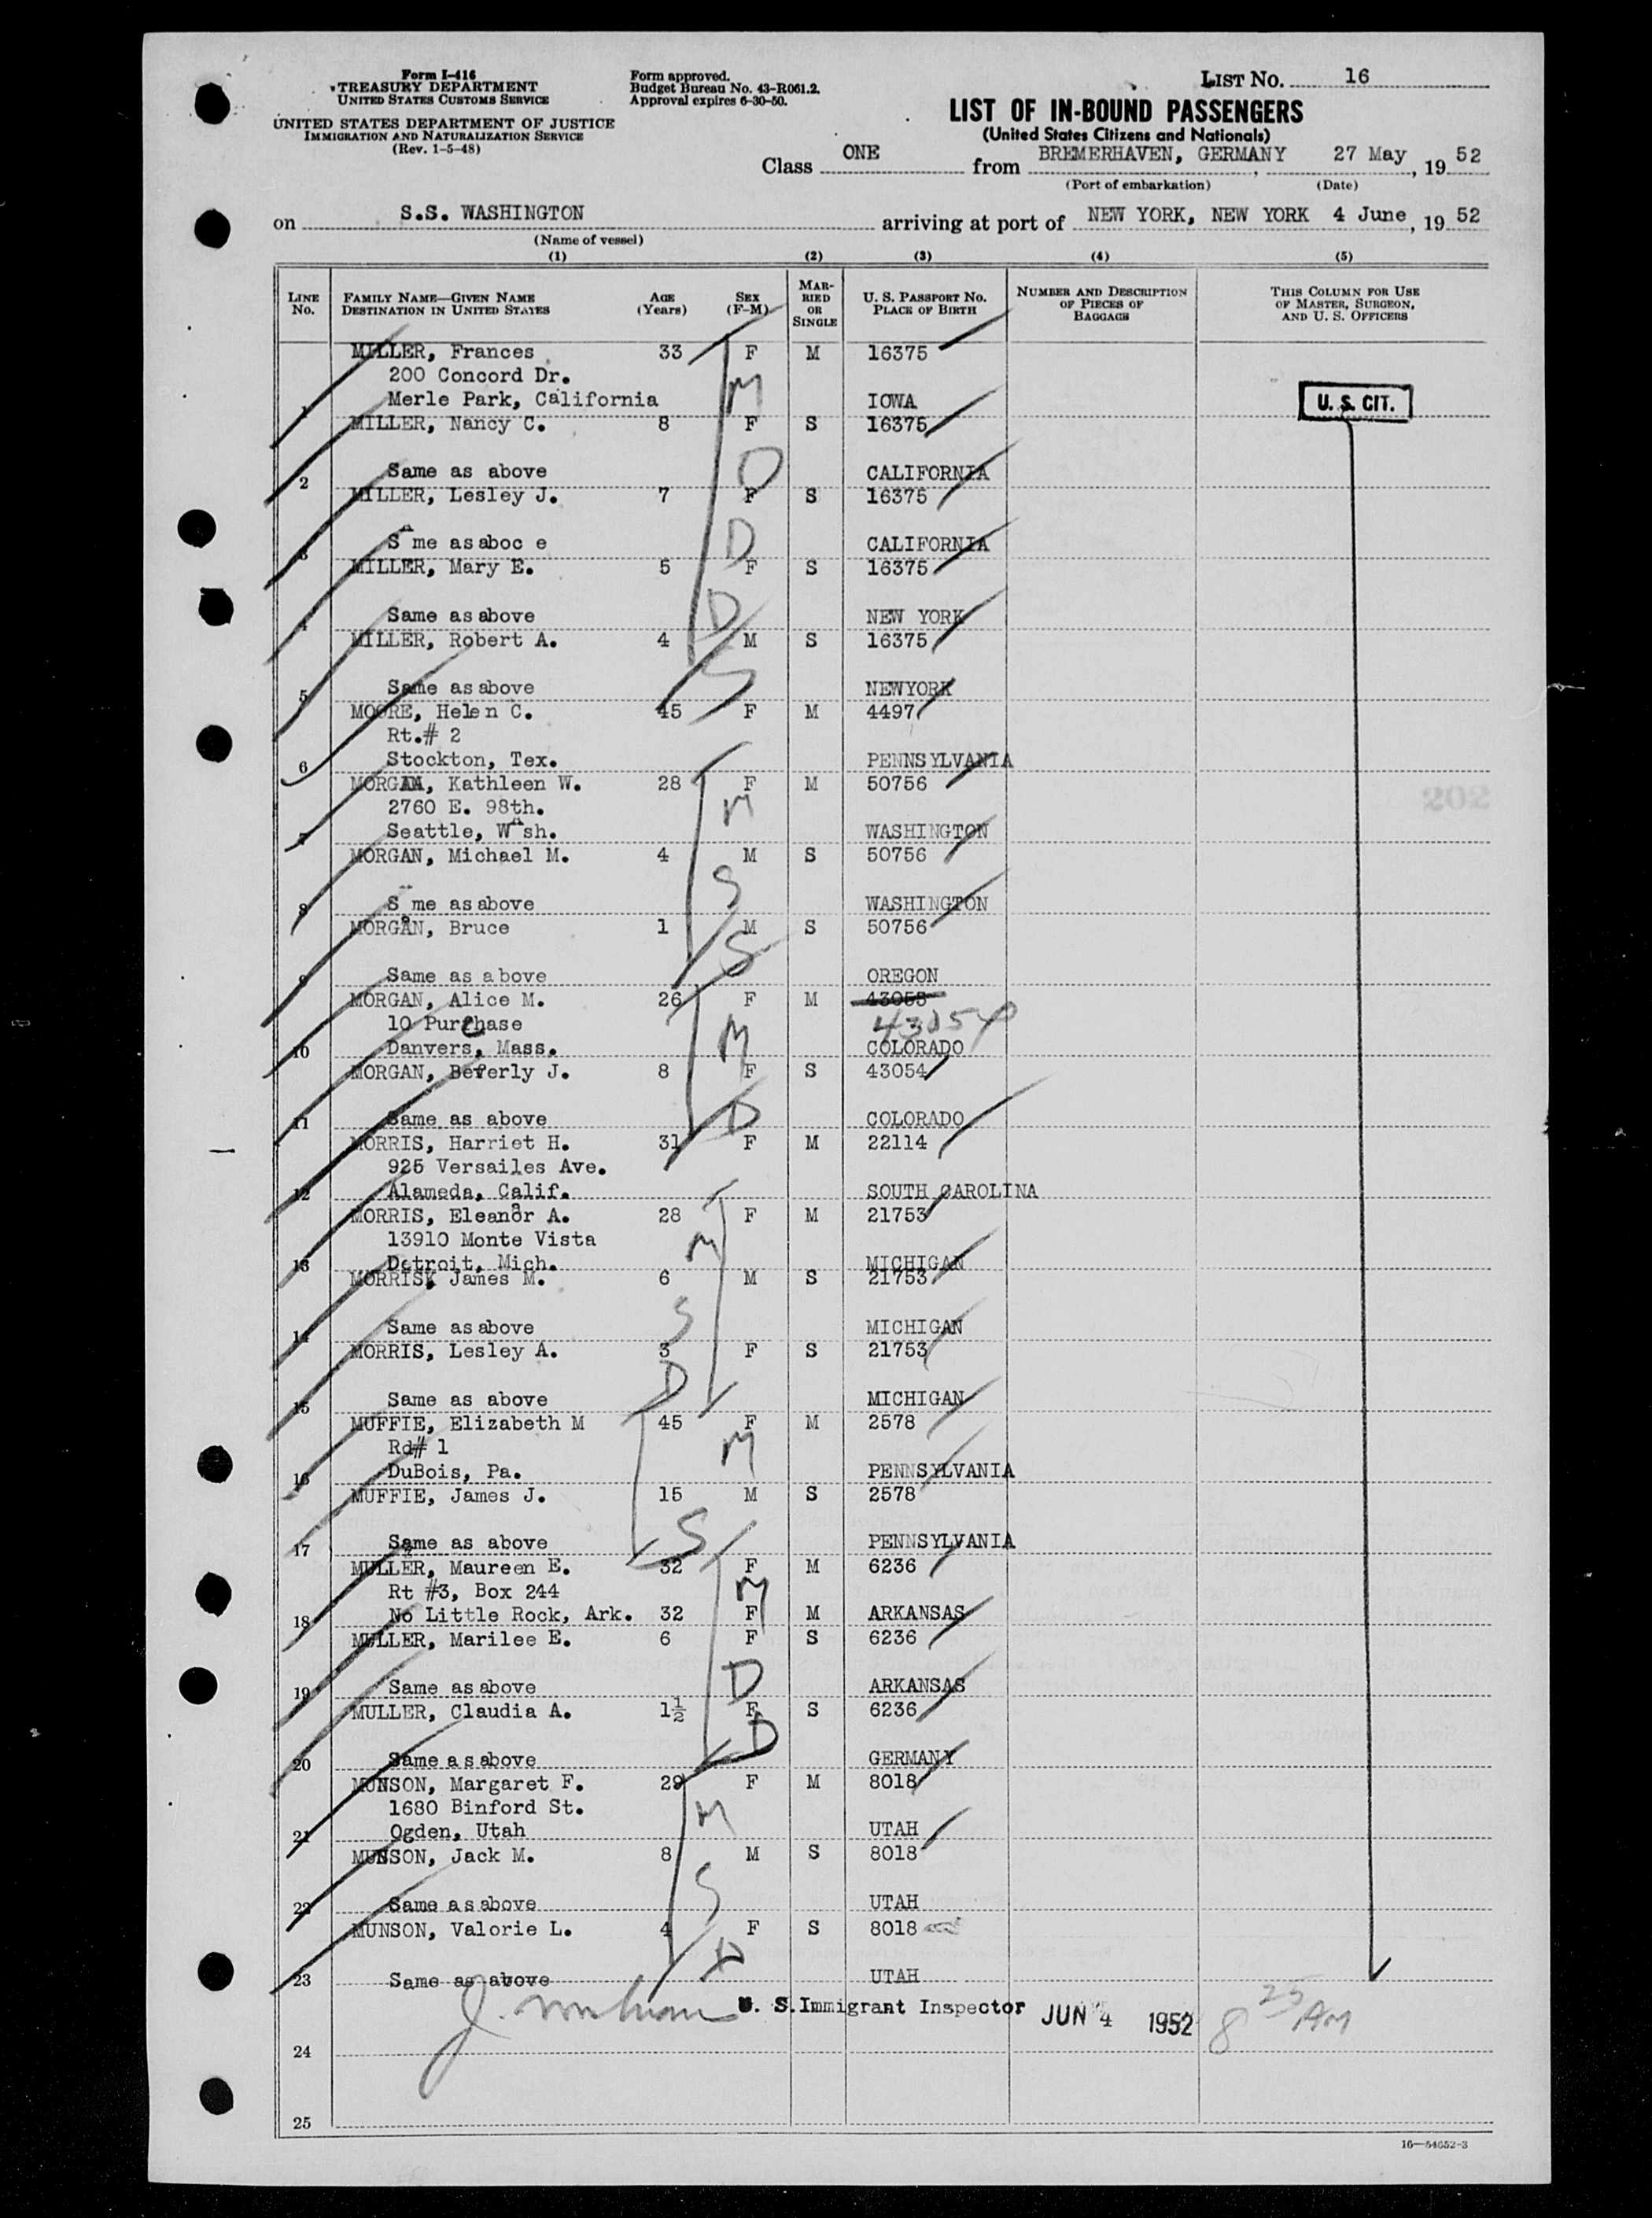 Form I-416
TREASURY DEPARTMENT
UNITED STATES CUSTOMS SERVICE
UNITED STATES DEPARTMENT OF JUSTICE
IMMIGRATION AND NATURALIZATION SERVICE
(Rev. 1-5-48)
Form approved.
Budget Bureau No. 43-R061.2.
Approval expires 6-30-50.
LIST No. 16
LIST OF IN-BOUND PASSENGERS
(United States Citizens and Nationals)
Class ONE from BREMERHAVEN, GERMANY, 27 May, 19 52
(Port of embarkation) (Date)
on S.S. WASHINGTON arriving at port of NEW YORK, NEW YORK 4 June, 19 52
(Name of vessel)
(1) (2) (3) (4) (5)
LINE No. FAMILY NAME—GIVEN NAME DESTINATION IN UNITED STATES AGE (Years) SEX (F-M) MARRIED OR SINGLE U. S. PASSPORT No. PLACE OF BIRTH NUMBER AND DESCRIPTION OF PIECES OF BAGGAGE THIS COLUMN FOR USE OF MASTER, SURGEON, AND U. S. OFFICERS
MILLER, Frances 33 F M 16375
200 Concord Dr. M
1 Merle Park, California IOWA U. S. CIT.
MILLER, Nancy C. 8 F S 16375
D
2 Same as above CALIFORNIA
MILLER, Lesley J. 7 F S 16375
D
3 Same as aboc e CALIFORNIA
MILLER, Mary E. 5 F S 16375
D
4 Same as above NEW YORK
MILLER, Robert A. 4 M S 16375
S
5 Same as above NEWYORK
MOORE, Helen C. 45 F M 4497
Rt.# 2
6 Stockton, Tex. PENNSYLVANIA
MORGAN, Kathleen W. 28 F M 50756
2760 E. 98th. M
7 Seattle, Wash. WASHINGTON
MORGAN, Michael M. 4 M S 50756
S
8 Same as above WASHINGTON
MORGAN, Bruce 1 M S 50756
S
9 Same as above OREGON
MORGAN, Alice M. 26 F M 43053
10 Purchase 43054
10 Danvers, Mass. M COLORADO
MORGAN, Beverly J. 8 F S 43054
D
11 Same as above COLORADO
MORRIS, Harriet H. 31 F M 22114
925 Versailes Ave.
12 Alameda, Calif. SOUTH CAROLINA
MORRIS, Eleanor A. 28 F M 21753
13910 Monte Vista M
13 Detroit, Mich. MICHIGAN
MORRIS, James M. 6 M S 21753
S
14 Same as above MICHIGAN
MORRIS, Lesley A. 3 F S 21753
D
15 Same as above MICHIGAN
MUFFIE, Elizabeth M 45 F M 2578
Rd# 1 M
16 DuBois, Pa. PENNSYLVANIA
MUFFIE, James J. 15 M S 2578
S
17 Same as above PENNSYLVANIA
MULLER, Maureen E. 32 F M 6236
Rt #3, Box 244 M
18 No Little Rock, Ark. 32 F M ARKANSAS
MULLER, Marilee E. 6 F S 6236
D
19 Same as above ARKANSAS
MULLER, Claudia A. 1½ F S 6236
D
20 Same as above GERMANY
MUNSON, Margaret F. 29 F M 8018
1680 Binford St. M
21 Ogden, Utah UTAH
MUNSON, Jack M. 8 M S 8018
S
22 Same as above UTAH
MUNSON, Valorie L. 4 F S 8018
D
23 Same as above UTAH
J. U. S. Immigrant Inspector JUN 4 1952 8 25 AM
24
25
16—54652-3
202